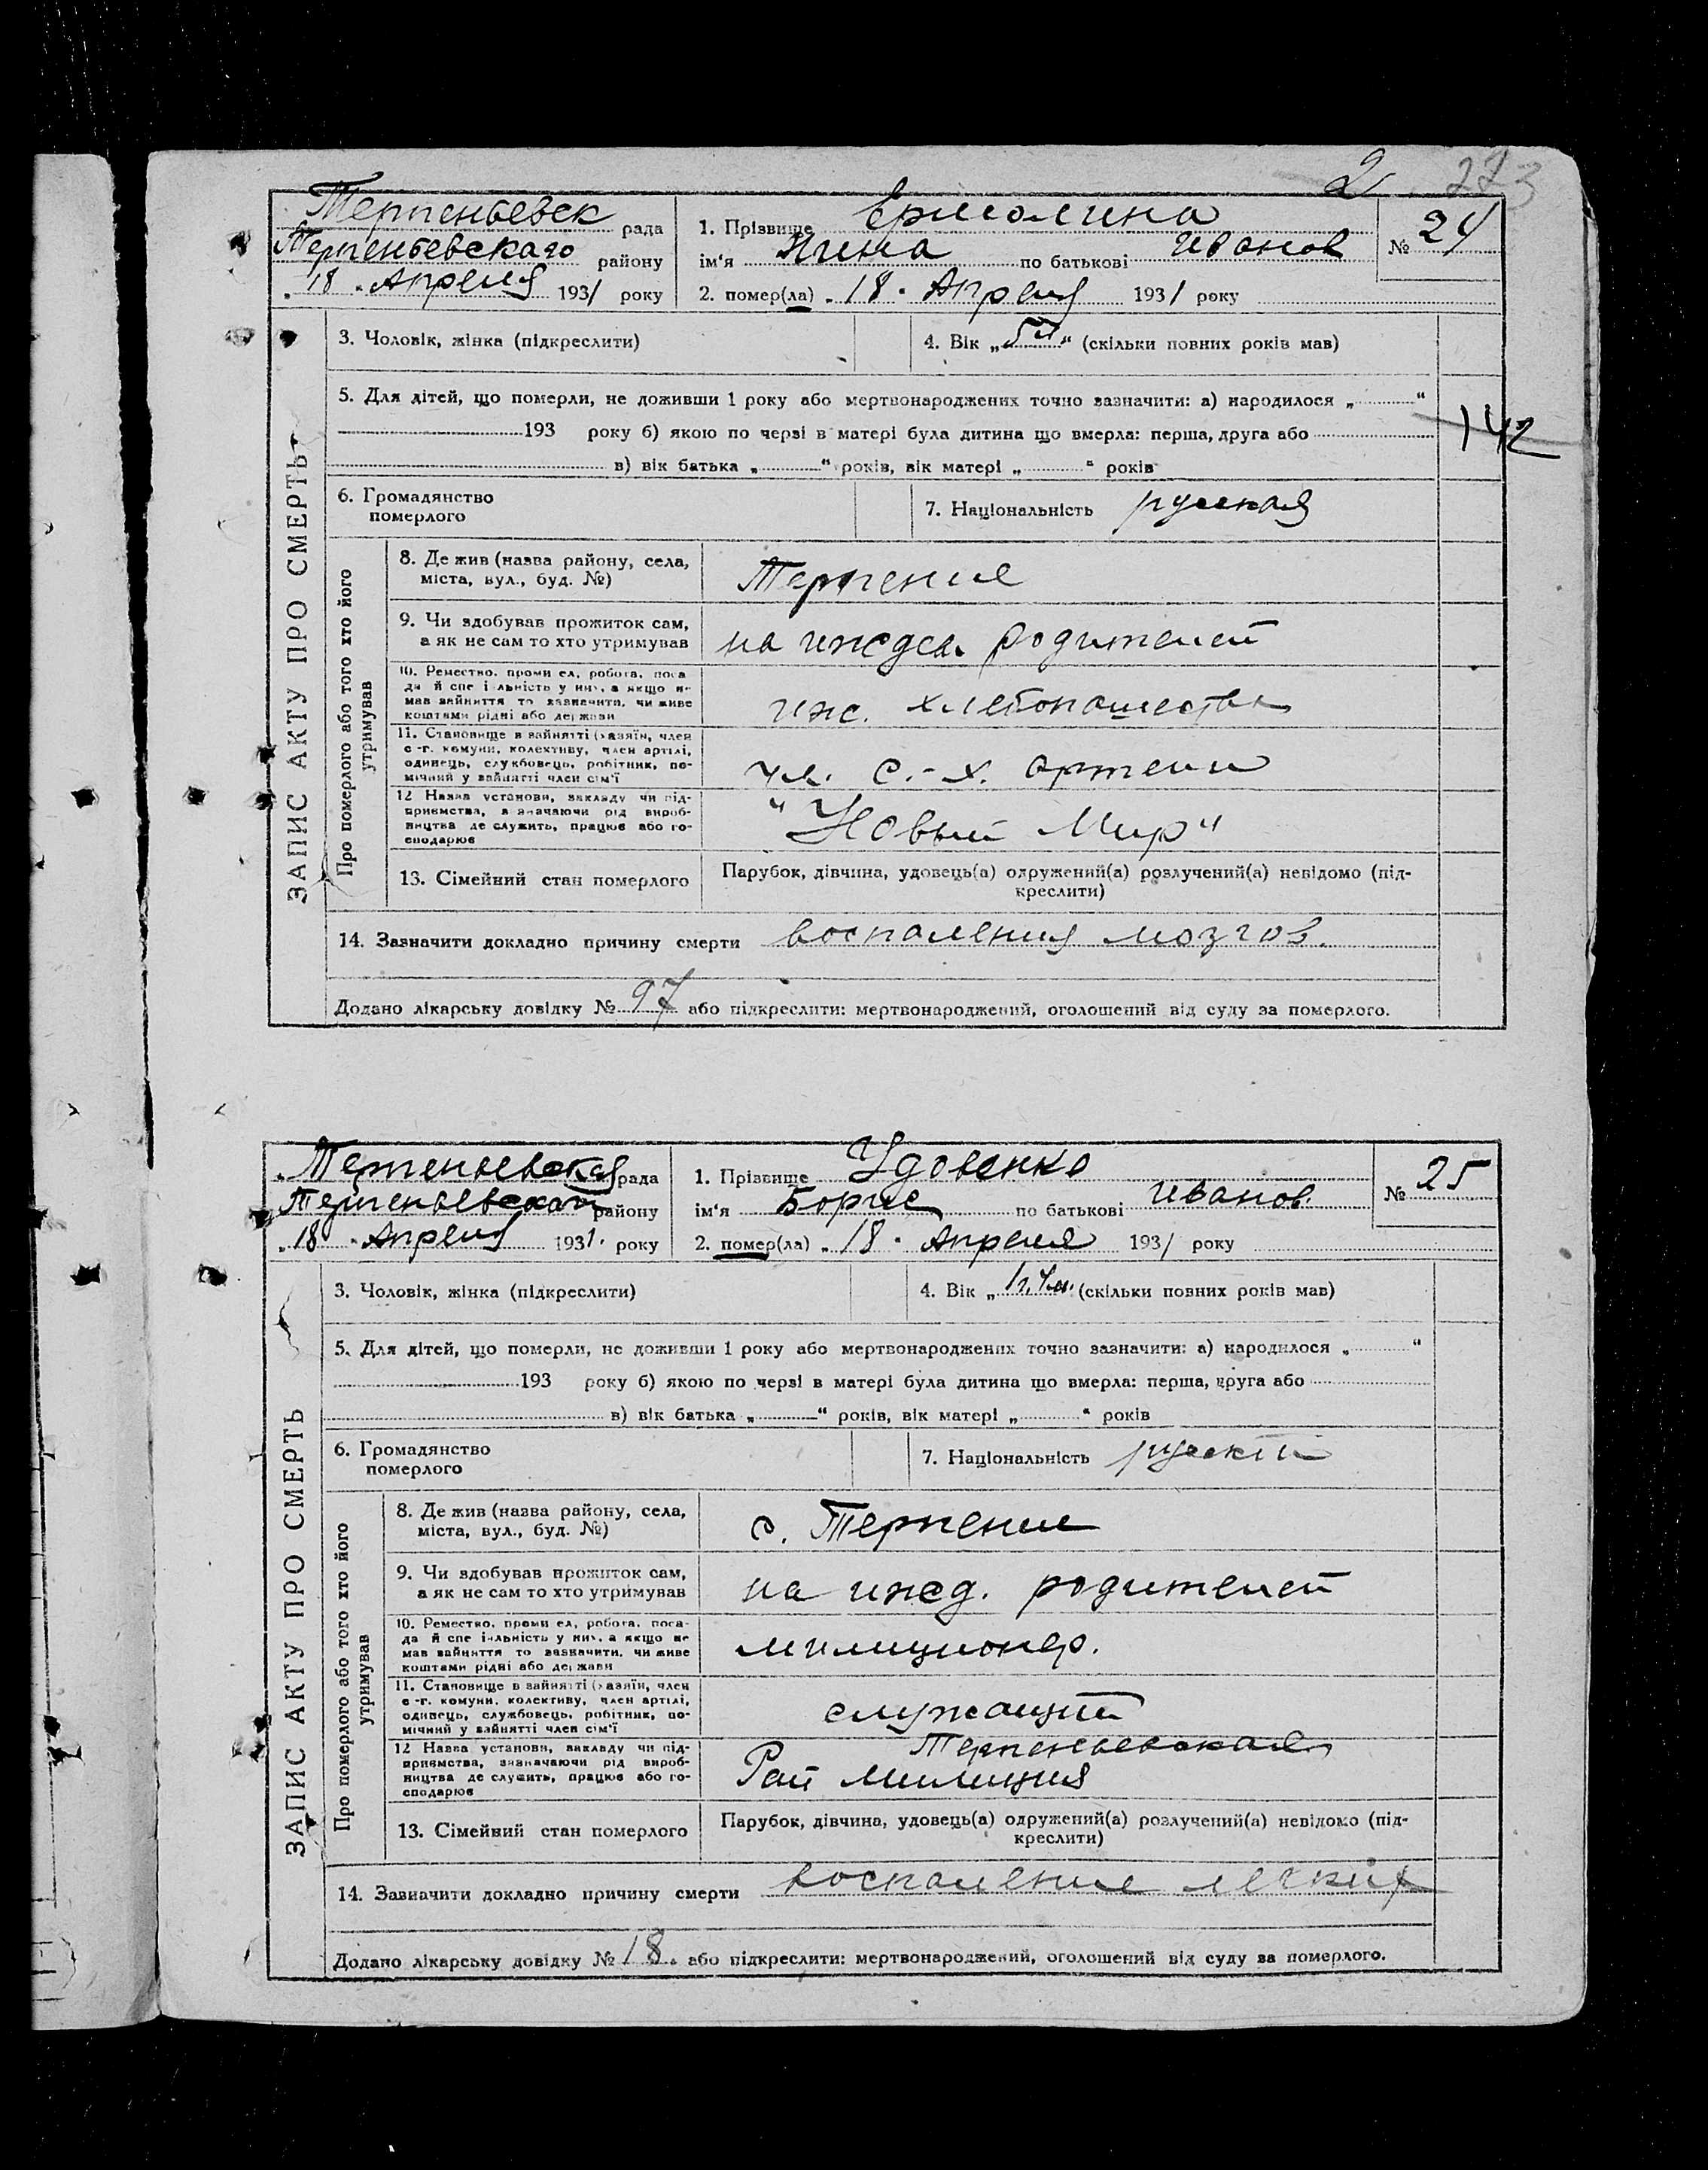 2
273
Терпеньевск рада
Терпеньевскаго району
„18 „ Апреля 1931 року
1. Прізвище Ермолина
ім'я Нина по батькові Иванов
2. помер(ла) „18 „ Апреля 1931 року
№ 24
ЗАПИС АКТУ ПРО СМЕРТЬ
3. Чоловік, жінка (підкреслити)
4. Вік „5 м“ (скільки повних років мав)
5. Для дітей, що померли, не доживши 1 року або мертвонароджених точно зазначити: а) народилося „ “
193 року б) якою по черзі в матері була дитина що вмерла: перша, друга або
142
в) вік батька „ “ років, вік матері „ “ років
6. Громадянство
померлого
7. Національність русская
Про померлого або того хто його
утримував
8. Де жив (назва району, села,
міста, вул., буд. №)
Терпение
9. Чи здобував прожиток сам,
а як не сам то хто утримував
на иждев. родителей
10. Ремество, проми ел, робота, поса
ди й спе і льність у них, а якщо не
мав зайняття то зазначити, чи живе
коштами рідні або держави
иж. хлебопашества
11. Становище в зайнятті (хазяїн, член
с-г. комуни, колективу, член артілі,
одинець, службовець, робітник, по-
мічний у зайнятті член сім'ї
чл. с.-х. артели
12 Назва установи, закладу чи під-
приємства, зазначаючи рід вироб-
ництва де служить, працює або го-
сподарює
"Новый Мир"
13. Сімейний стан померлого
Парубок, дівчина, удовець(а) одружений(а) розлучений(а) невідомо (під-
креслити)
14. Зазначити докладно причину смерти воспаления мозгов.
Додано лікарську довідку № 97 або підкреслити: мертвонароджений, оголошений від суду за померлого.
Терпеньевская рада
Терпеньевской району
„18 „ Апреля 1931. року
1. Прізвище Удовенко
ім'я Борис по батькові Иванов.
2. помер(ла) „18 „ Апреля 1931 року
№ 25
ЗАПИС АКТУ ПРО СМЕРТЬ
3. Чоловік, жінка (підкреслити)
4. Вік „1 г. 4 м. (скільки повних років мав)
5. Для дітей, що померли, не доживши 1 року або мертвонароджених точно зазначити: а) народилося „ “
193 року б) якою по черзі в матері була дитина що вмерла: перша, друга або
в) вік батька „ “ років, вік матері „ “ років
6. Громадянство
померлого
7. Національність русский
Про померлого або того хто його
утримував
8. Де жив (назва району, села,
міста, вул., буд. №)
с. Терпение
9. Чи здобував прожиток сам,
а як не сам то хто утримував
на ижд. родителей
10. Ремество, проми ел, робота, поса-
да й спе іальність у них, а якщо не
мав зайняття то зазначити, чи живе
коштами рідні або держави
милиционер.
11. Становище в зайнятті (хазяїн, член
с-г. комуни, колективу, член артілі,
одинець, службовець, робітник, по-
мічний у зайнятті член сім'ї
служащий
12 Назва установи, закладу чи під-
приємства, зазначаючи рід вироб-
ництва де служить, працює або го-
сподарює
Терпеньевская
Рай милиция
13. Сімейний стан померлого
Парубок, дівчина, удовець(а) одружений(а) розлучений(а) невідомо (під-
креслити)
14. Зазначити докладно причину смерти воспаление легких
Додано лікарську довідку № 18. або підкреслити: мертвонароджений, оголошений від суду за померлого.